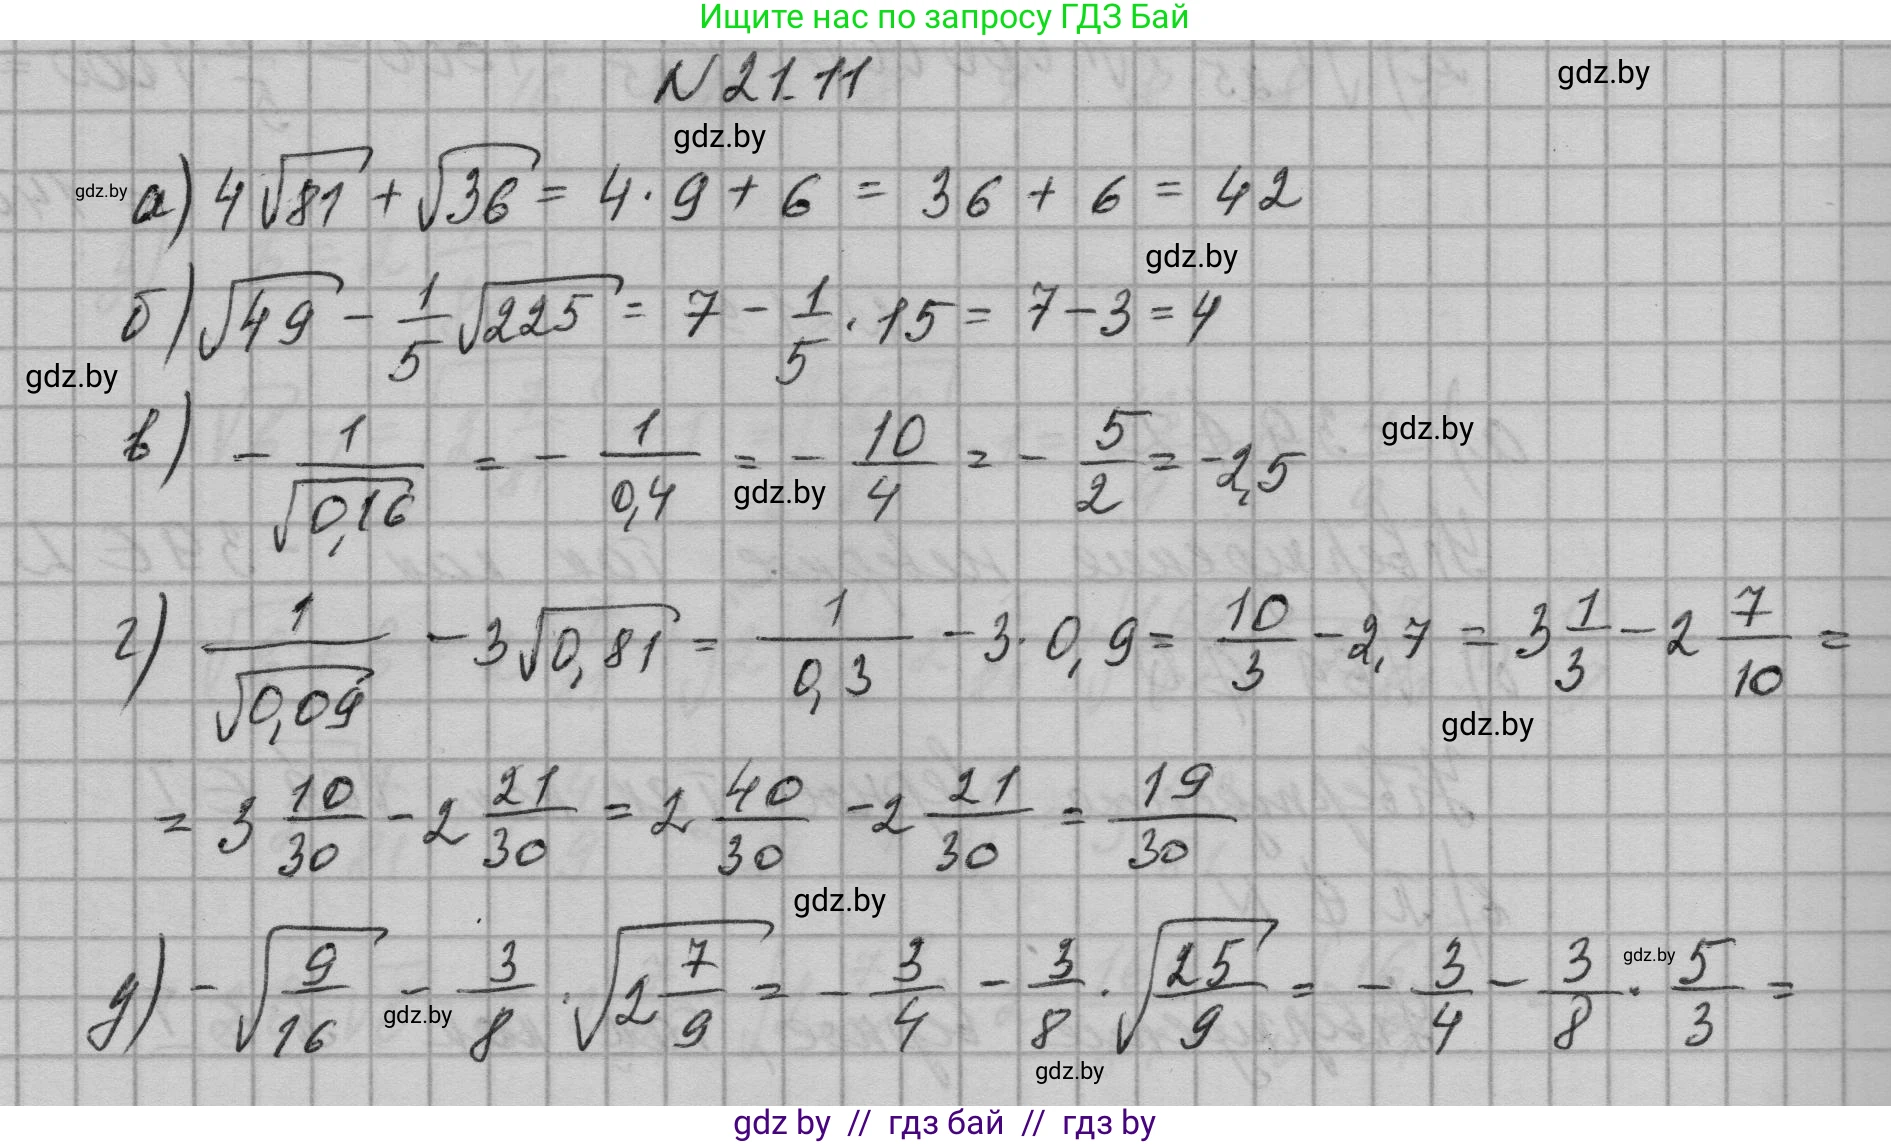 Ищите нас по запросу ГДЗ Бай
N 21.11
gdz.by
gdz.by
gdz.by а) 4√81 + √36 = 4 · 9 + 6 = 36 + 6 = 42
gdz.by
б) √49 - 1/5 √225 = 7 - 1/5 · 15 = 7 - 3 = 4
gdz.by
в) - 1/√0,16 = - 1/0,4 = - 10/4 = - 5/2 = -2,5
gdz.by
gdz.by
г) 1/√0,09 - 3√0,81 = 1/0,3 - 3 · 0,9 = 10/3 - 2,7 = 3 1/3 - 2 7/10 =
gdz.by
= 3 10/30 - 2 21/30 = 2 40/30 - 2 21/30 = 19/30
gdz.by
д) - √(9/16) - 3/8 · √(2 7/9) = - 3/4 - 3/8 · √(25/9) = - 3/4 - 3/8 · 5/3 =
gdz.by
gdz.by
gdz.by
gdz by // гдз бай // гдз by